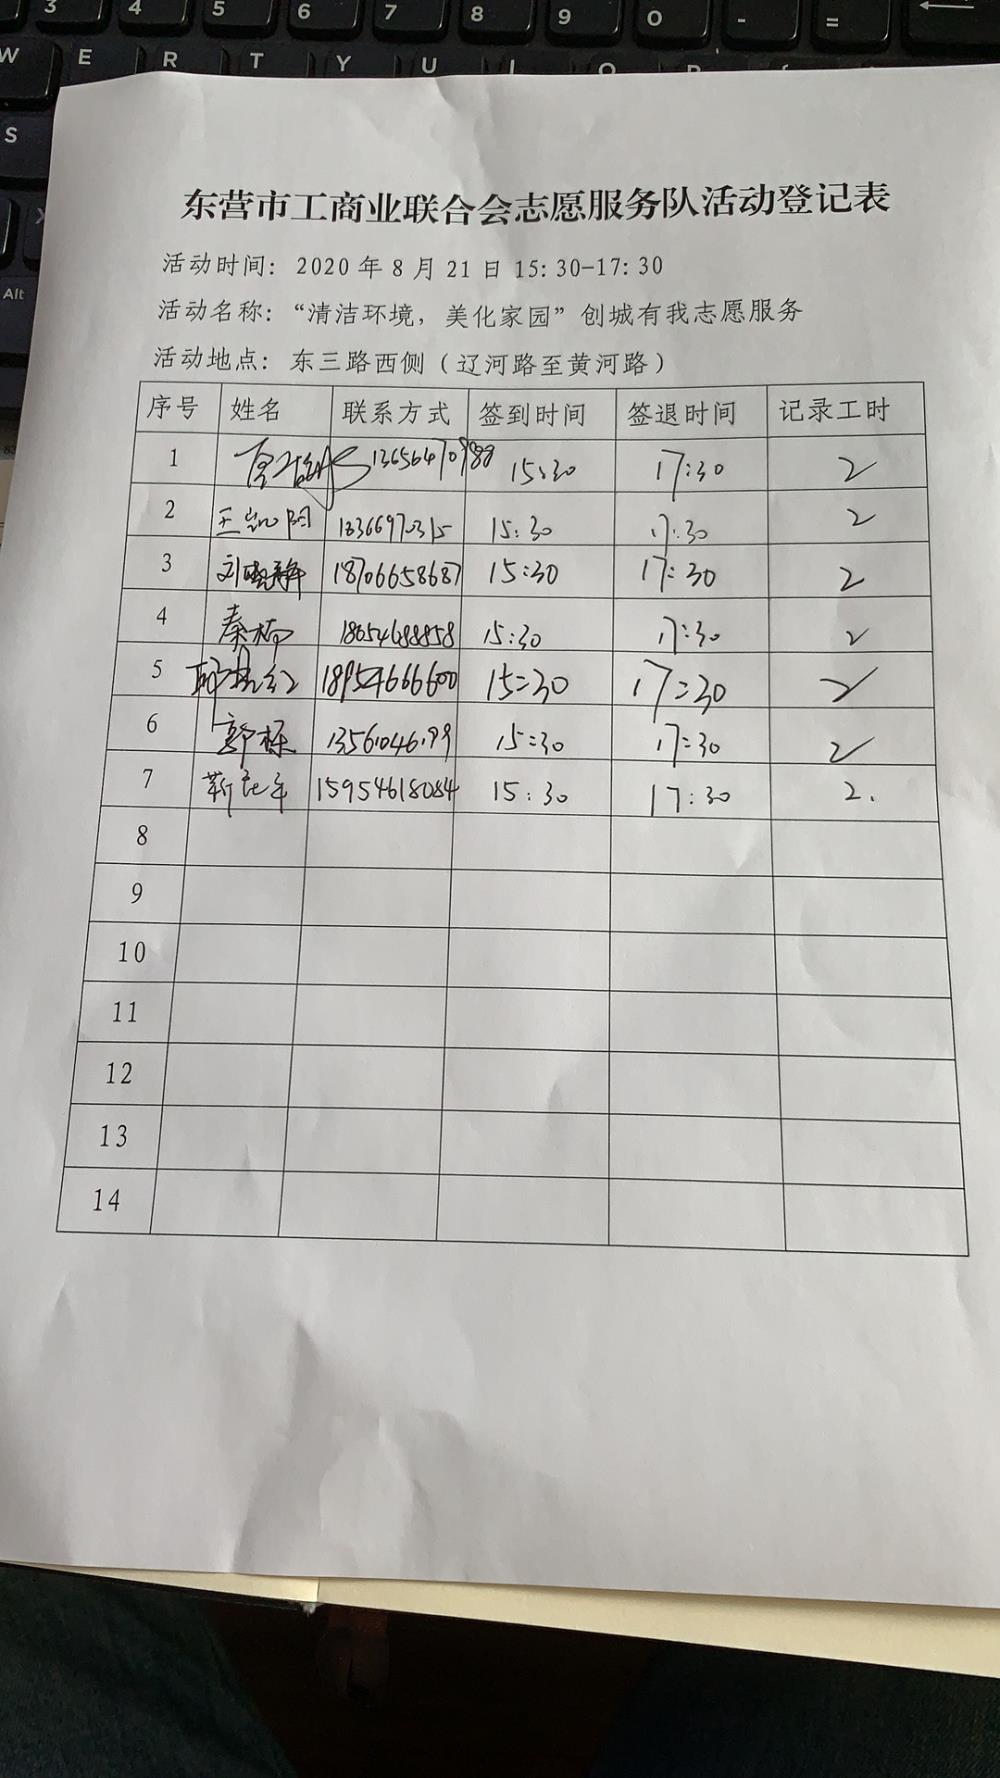 3 4 5 6 7 8 9 0 - =
W E R T Y U I O P
S
Alt
东营市工商业联合会志愿服务队活动登记表
活动时间: 2020 年 8 月 21 日 15: 30-17: 30
活动名称: “清洁环境, 美化家园” 创城有我志愿服务
活动地点: 东三路西侧 ( 辽河路至黄河路 )
序号 姓名 联系方式 签到时间 签退时间 记录工时
1 13656470988 15:30 17:30 2
2 王凯阳 15:30 17:30 2
3 刘晓静 18706658687 15:30 17:30 2
4 秦楠 18654688858 15:30 17:30 2
5 18954666600 15:30 17:30 2
6 郭栋 15:30 17:30 2
7 15954618084 15:30 17:30 2.
8
9
10
11
12
13
14